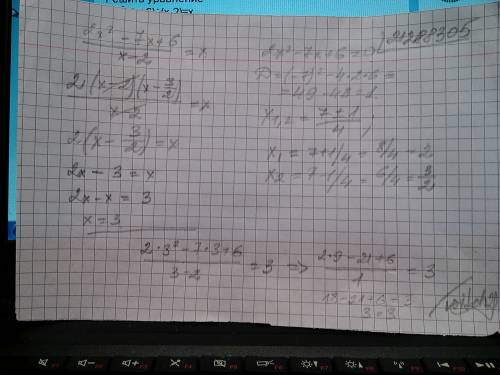 Решить уравнение
(2x² - 7x + 6) / (x - 2) = x
2(x - 2)(x - 3/2) / (x - 2) = x
2(x - 3/2) = x
2x - 3 = x
2x - x = 3
x = 3
2x² - 7x + 6 = 0
D = (-7)² - 4·2·6 =
= 49 - 48 = 1
x₁,₂ = (7 ± 1) / 4;
x₁ = 7+1/4 = 8/4 = 2
x₂ = 7-1/4 = 6/4 = 3/2
(2·3² - 7·3 + 6) / (3 - 2) = 3 => (2·9 - 21 + 6) / 1 = 3
18 - 21 + 6 = 3
3 = 3